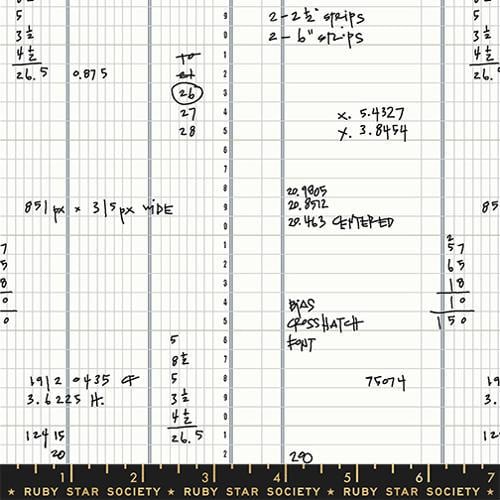 5
3 ½
4 ½
26.5 0.875
9
0
1
2
3
4
5
2 - 2 ½" strips
2 - 6" strips
26
27
28
x. 5.4327
y. 3.8454
851 px x 315 px wide
8
9
0
1
2
3
4
5
6
7
8
9
0
1
2
20.9805
20.8512
20.463 CENTERED
7
5
8
0
0
2
57
65
18
10
150
BIAS
CROSSHATCH
FONT
5
8 ½
5
3 ½
4 ½
26.5
1912 0435 CF
3.6225 H.
75074
12415
20
290
1 2 3 4 5 6
RUBY STAR SOCIETY ★ RUBY STAR SOCIETY ★ RUBY STAR SOCIETY ★ RUBY STAR